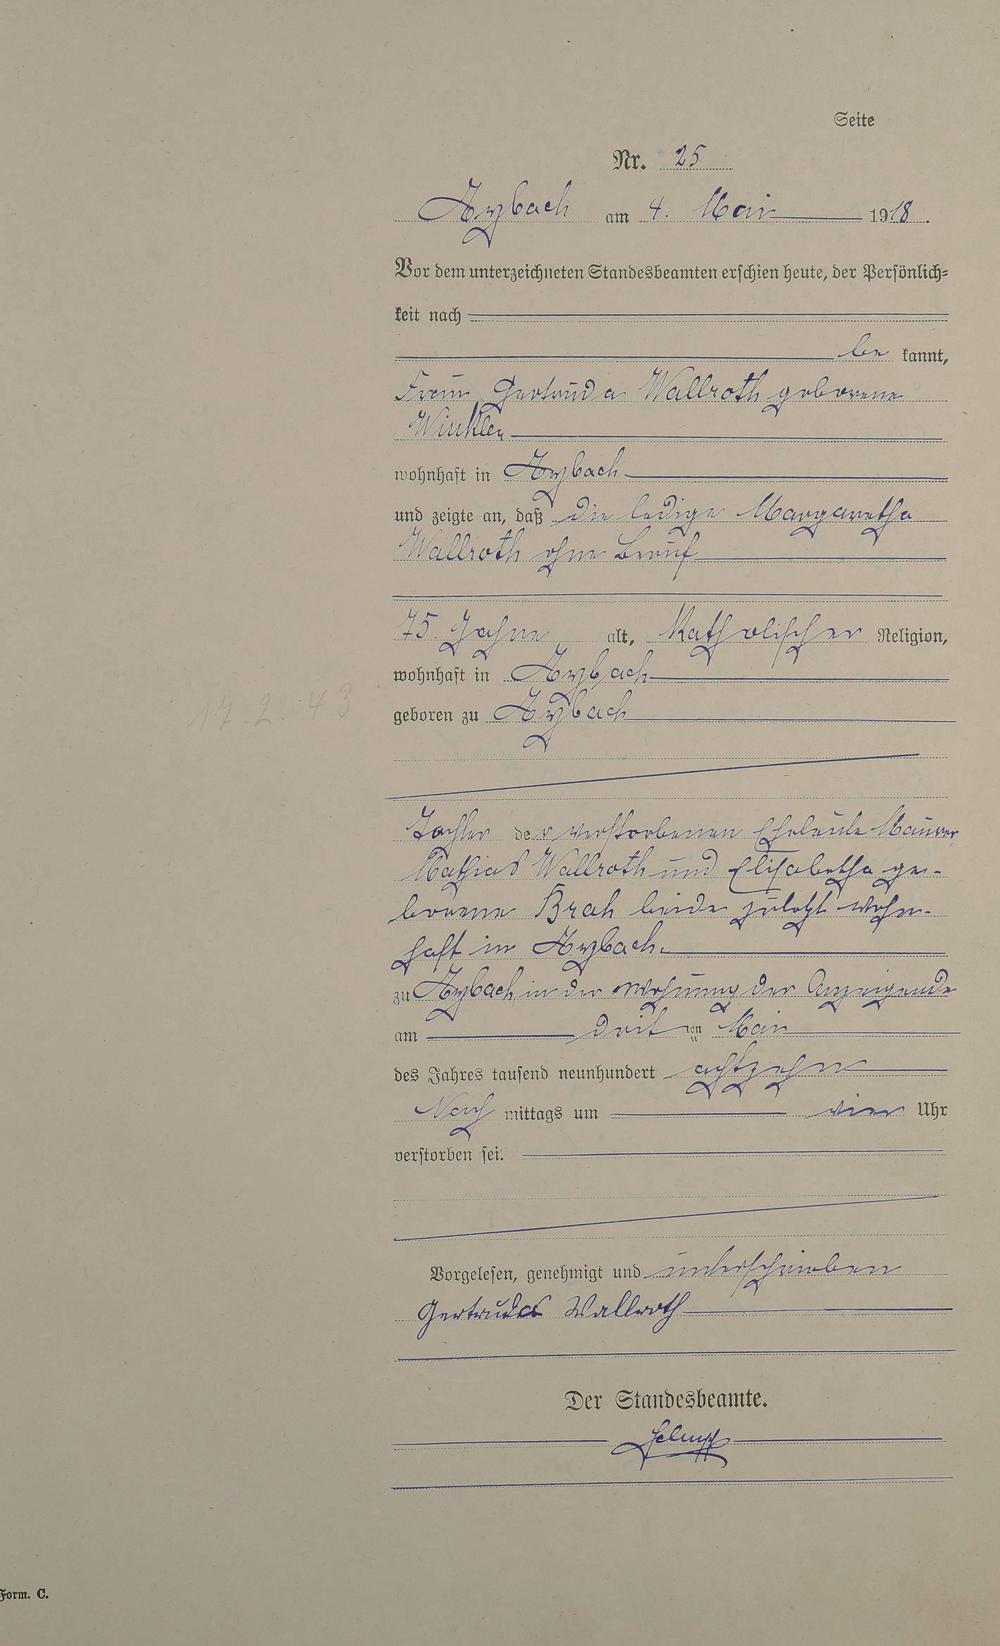 Seite
Nr. 25
Arzbach am 4. Mai 1918.
Vor dem unterzeichneten Standesbeamten erschien heute, der Persönlich=
keit nach
be kannt,
Frau Gertruda Wallroth geborene
Winkler
wohnhaft in Arzbach
und zeigte an, daß die ledige Margaretha
Wallroth ohne Beruf
75 Jahre alt, Katholischer Religion,
wohnhaft in Arzbach
geboren zu Arzbach
17. 2. 43
Tochter der verstorbenen Eheleute Maurer
Mathias Wallroth und Elisabetha ge-
borene Brah beide zuletzt wohn-
haft in Arzbach.
zu Arzbach in der Wohnung der Anzeigende
am drit ten Mai
des Jahres tausend neunhundert achtzehn
Nach mittags um vier Uhr
verstorben sei.
Vorgelesen, genehmigt und unterschrieben
Gertruda Wallroth
Der Standesbeamte.
Form. C.